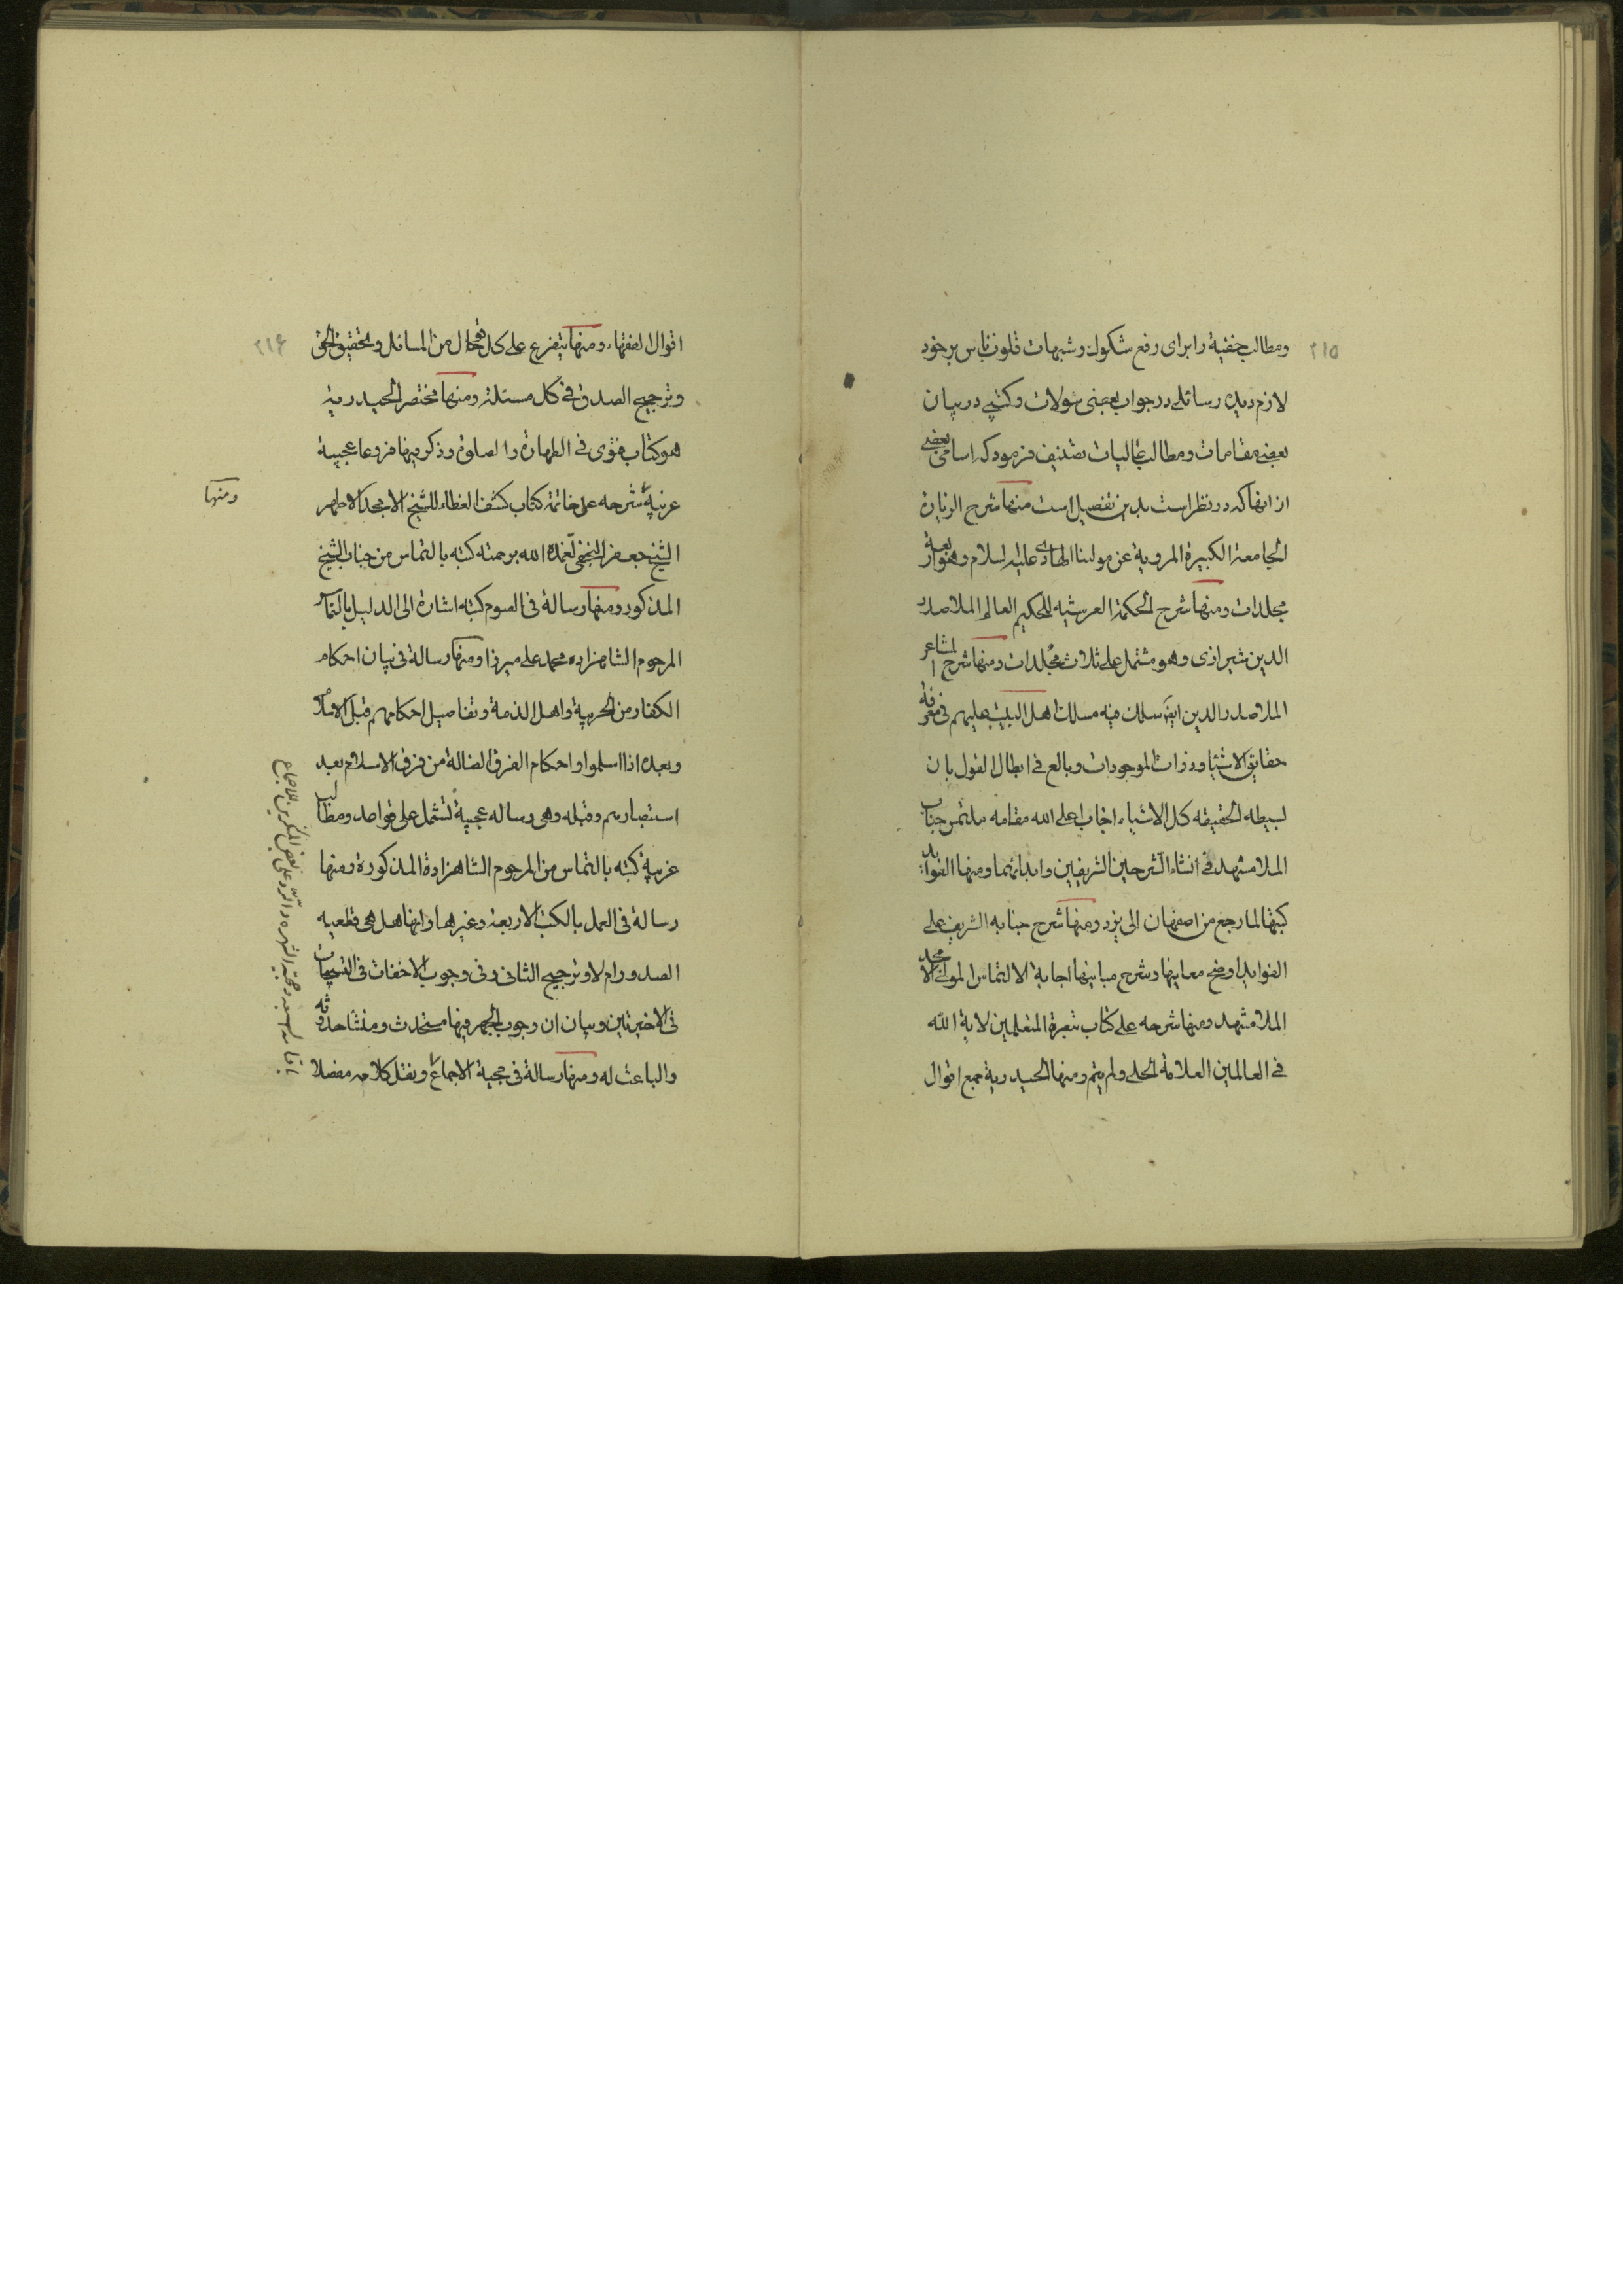 ٢١٥
ومطالب خفیة را برای رفع شکوك و شبهات قلوب ناس بر خود
لازم دیده رسائلی در جواب بعضی سؤلات و کتبی در بیان
بعضی مقامات و مطالب عالیات تصنیف فرمود که اسامی بعضی
از انها که در نظر است بدین تفصیل است منها شرح الزیارة
الجامعة الکبیرة المرویة عن مولینا الهادی علیه السلام وهو اربعة
مجلدات ومنها شرح الحکمة العرشیه للحکیم العالم الملا صدر
الدین شیرازی وهو مشتمل علی ثلاث مجلدات ومنها شرح المشاعر
الملا صدر الدین ایضا سلك فیه مسالك اهل البیت علیهم فی معرفة
حقایق الاشیاء و ذرات الموجودات وبالغ فی ابطال القول بان
بسیطه الحقیقه کل الاشیاء اجاب اعلی الله مقامه ملتمس جناب
الملا مشهد فی انشاء الشرحین الشریفین وابداتهما ومنها الفواید
کتبها لما رجع من اصفهان الی یزد ومنها شرح جنابه الشریف علی
الفواید اوضح معانیها وشرح مبانیها اجابة الالتماس المولی الامجد
الملا مشهد ومنها شرحه علی کتاب تبصرة المتعلمین لایة الله
فی العالمین العلامة الحلی ولم یتم ومنها الحیدریة جمع اقوال
٢١۶
اقوال الفقهاء ومنها یتفرع علی کل من المسائل وتحقیق الحق
وترجیح الصدق فی کل مسئلة ومنها مختصر الحیدریة
هو کتاب فتوی فی الطهارة والصلوة وذکر فیها فروعا عجیبة
غریبة شرحه علی خاتمة کتاب کشف الغطاء للشیخ الامجد الاطهر
ومنها
الشیخ جعفر النجفی تغمده الله برحمته کتبه بالتماس من جناب الشیخ
المذکور ومنها رسالة فی الصوم کتبه اشارة الی الدلیل بالتماس
المرحوم الشاهزاده محمد علی میرزا ومنها رسالة فی بیان احکام
الکفار من الحربیة واهل الذمة وتفاصیل احکامهم قبل الاسلام
وبعده اذا اسلموا واحکام الفرق الضالة من فرق الاسلام بعد
استبصارهم وقبله وهی رساله عجیبة تشمل علی قواعد ومطالب
غریبة کتبه بالتماس من المرحوم الشاهزادة المذکورة ومنها
رسالة فی العمل بالکتب الاربعة وغیرها وانها هل هی قطعیه
الصدور ام لا وترجیح الثانی وفی وجوب الاخفات فی التسبیحات
فی الاخیرتین وبیان ان وجوب الجهر فیها مستحدث ومنشا حدوثه
والباعث له ومنها رسالة فی حجیة الاجماع ونقل کلام مفصلا
وحجیة الشهره والرد علی بعض المنکرین للاجماع